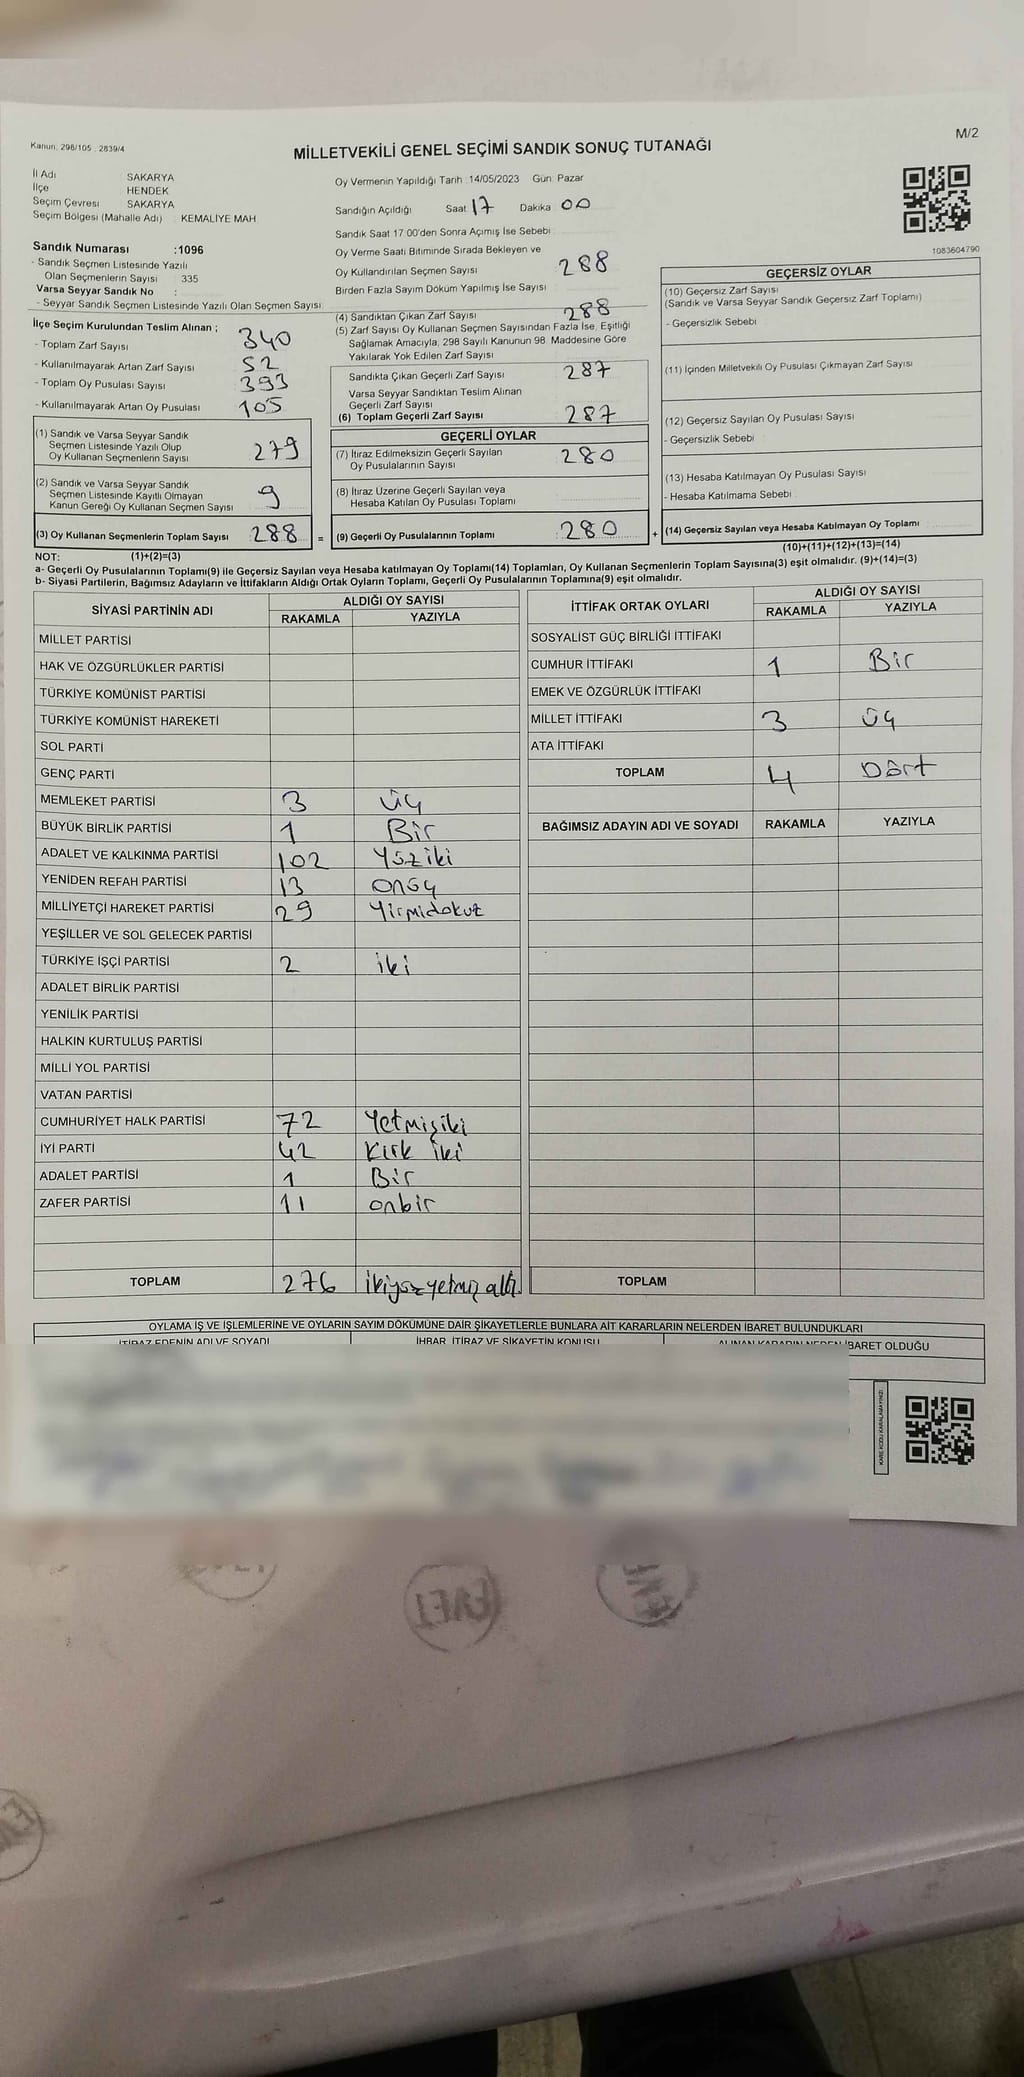 M/2
Kanun: 298/105 : 2839/4
MİLLETVEKİLİ GENEL SEÇİMİ SANDIK SONUÇ TUTANAĞI
İl Adı : SAKARYA
İlçe : HENDEK
Seçim Çevresi : SAKARYA
Seçim Bölgesi (Mahalle Adı) : KEMALİYE MAH
Sandık Numarası :1096
- Sandık Seçmen Listesinde Yazılı
Olan Seçmenlerin Sayısı : 335
Varsa Seyyar Sandık No :
- Seyyar Sandık Seçmen Listesinde Yazılı Olan Seçmen Sayısı:
İlçe Seçim Kurulundan Teslim Alınan ;
- Toplam Zarf Sayısı 340
- Kullanılmayarak Artan Zarf Sayısı 52
- Toplam Oy Pusulası Sayısı 393
- Kullanılmayarak Artan Oy Pusulası 105
(1) Sandık ve Varsa Seyyar Sandık
Seçmen Listesinde Yazılı Olup
Oy Kullanan Seçmenlerin Sayısı 279
(2) Sandık ve Varsa Seyyar Sandık
Seçmen Listesinde Kayıtlı Olmayan
Kanun Gereği Oy Kullanan Seçmen Sayısı 9
(3) Oy Kullanan Seçmenlerin Toplam Sayısı 288 =
Oy Vermenin Yapıldığı Tarih :14/05/2023 Gün: Pazar
Sandığın Açıldığı Saat 17 Dakika 00
Sandık Saat 17:00'den Sonra Açımış İse Sebebi :
Oy Verme Saati Bitiminde Sırada Bekleyen ve
Oy Kullandırılan Seçmen Sayısı 288
Birden Fazla Sayım Döküm Yapılmış İse Sayısı
(4) Sandıktan Çıkan Zarf Sayısı 288
(5) Zarf Sayısı Oy Kullanan Seçmen Sayısından Fazla İse, Eşitliği
Sağlamak Amacıyla, 298 Sayılı Kanunun 98. Maddesine Göre
Yakılarak Yok Edilen Zarf Sayısı
Sandıkta Çıkan Geçerli Zarf Sayısı 287
Varsa Seyyar Sandıktan Teslim Alınan
Geçerli Zarf Sayısı
(6) Toplam Geçerli Zarf Sayısı 287
GEÇERLİ OYLAR
(7) İtiraz Edilmeksizin Geçerli Sayılan
Oy Pusulalarının Sayısı 280
(8) İtiraz Üzerine Geçerli Sayılan veya
Hesaba Katılan Oy Pusulası Toplamı
(9) Geçerli Oy Pusulalarının Toplamı 280 +
1083604790
GEÇERSİZ OYLAR
(10) Geçersiz Zarf Sayısı
(Sandık ve Varsa Seyyar Sandık Geçersiz Zarf Toplamı)
- Geçersizlik Sebebi :
(11) İçinden Milletvekili Oy Pusulası Çıkmayan Zarf Sayısı
(12) Geçersiz Sayılan Oy Pusulası Sayısı
- Geçersizlik Sebebi :
(13) Hesaba Katılmayan Oy Pusulası Sayısı
- Hesaba Katılmama Sebebi :
(14) Geçersiz Sayılan veya Hesaba Katılmayan Oy Toplamı
NOT: (1)+(2)=(3) (10)+(11)+(12)+(13)=(14)
a- Geçerli Oy Pusulalarının Toplamı(9) ile Geçersiz Sayılan veya Hesaba katılmayan Oy Toplamı(14) Toplamları, Oy Kullanan Seçmenlerin Toplam Sayısına(3) eşit olmalıdır. (9)+(14)=(3)
b- Siyasi Partilerin, Bağımsız Adayların ve İttifakların Aldığı Ortak Oyların Toplamı, Geçerli Oy Pusulalarının Toplamına(9) eşit olmalıdır.
SİYASİ PARTİNİN ADI ALDIĞI OY SAYISI
RAKAMLA YAZIYLA
MİLLET PARTİSİ
HAK VE ÖZGÜRLÜKLER PARTİSİ
TÜRKİYE KOMÜNİST PARTİSİ
TÜRKİYE KOMÜNİST HAREKETİ
SOL PARTİ
GENÇ PARTİ
MEMLEKET PARTİSİ 3 üç
BÜYÜK BİRLİK PARTİSİ 1 Bir
ADALET VE KALKINMA PARTİSİ 102 Yüziki
YENİDEN REFAH PARTİSİ 13 onüç
MİLLİYETÇİ HAREKET PARTİSİ 29 Yirmidokuz
YEŞİLLER VE SOL GELECEK PARTİSİ
TÜRKİYE İŞÇİ PARTİSİ 2 iki
ADALET BİRLİK PARTİSİ
YENİLİK PARTİSİ
HALKIN KURTULUŞ PARTİSİ
MİLLİ YOL PARTİSİ
VATAN PARTİSİ
CUMHURİYET HALK PARTİSİ 72 Yetmişiki
İYİ PARTİ 42 Kırk iki
ADALET PARTİSİ 1 Bir
ZAFER PARTİSİ 11 onbir
TOPLAM 276 ikiyüzyetmiş altı
İTTİFAK ORTAK OYLARI ALDIĞI OY SAYISI
RAKAMLA YAZIYLA
SOSYALİST GÜÇ BİRLİĞİ İTTİFAKI
CUMHUR İTTİFAKI 1 Bir
EMEK VE ÖZGÜRLÜK İTTİFAKI
MİLLET İTTİFAKI 3 üç
ATA İTTİFAKI
TOPLAM 4 Dört
BAĞIMSIZ ADAYIN ADI VE SOYADI RAKAMLA YAZIYLA
TOPLAM
OYLAMA İŞ VE İŞLEMLERİNE VE OYLARIN SAYIM DÖKÜMÜNE DAİR ŞİKAYETLERLE BUNLARA AİT KARARLARIN NELERDEN İBARET BULUNDUKLARI
İTİRAZ EDENİN ADI VE SOYADI İHBAR, İTİRAZ VE ŞİKAYETİN KONUSU ALINAN KARARIN NEDEN İBARET OLDUĞU
KARE KODU KARALAMAYINIZ!
EVET
EVET
EVET